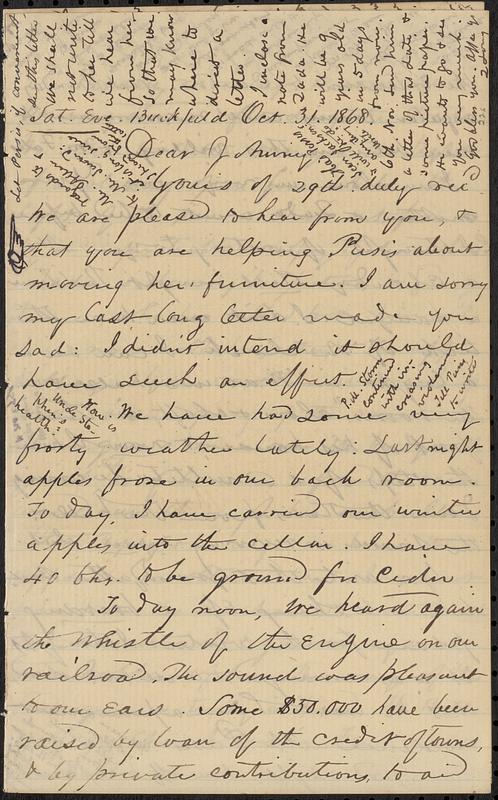 Sat. Eve. Buckfield Oct. 31. 1868.
Dear Johnny,
Yours of 29th duly rec'd
We are pleased to hear from you, &
that you are helping Pusis about
moving her furniture. I am sorry
my last long letter made you
sad: I didn't intend it should
have such an effect.
We have had some very
frosty weather lately: Last night
apples froze in our back room.
To day, I have carried our winter
apples into the cellar. I have
40 bhs. to be ground for Cider
To day noon, we heard again
the Whistle of the Engine on our
railroad. The sound was pleasant
to our ears. Some $30.000 have been
raised by loan of the credit of towns,
& by private contributions, to aid
Let Persis, if convenient
see this letter
We shall
not write
to her till
we hear
from her,
So that we
may know
where to
direct a
letter.
I inclose a
note from
Zada. He
will be 9
years old
in 5 days
from now.
6th Nov. Send him
a letter of that date &
some picture paper.
He wants to go & see
you very much.
God bless you. Affy yr
How is
Uncle Ste-
phen's
health?
P.M. Storm
continued
with in-
creasing
violence